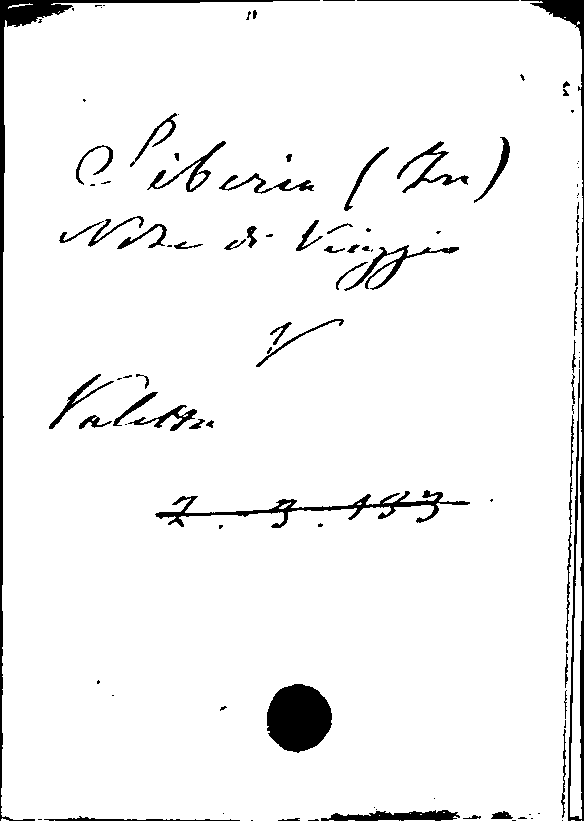 Siberia (In)
Note di Viaggio
V
Valetta
2. 3. 193